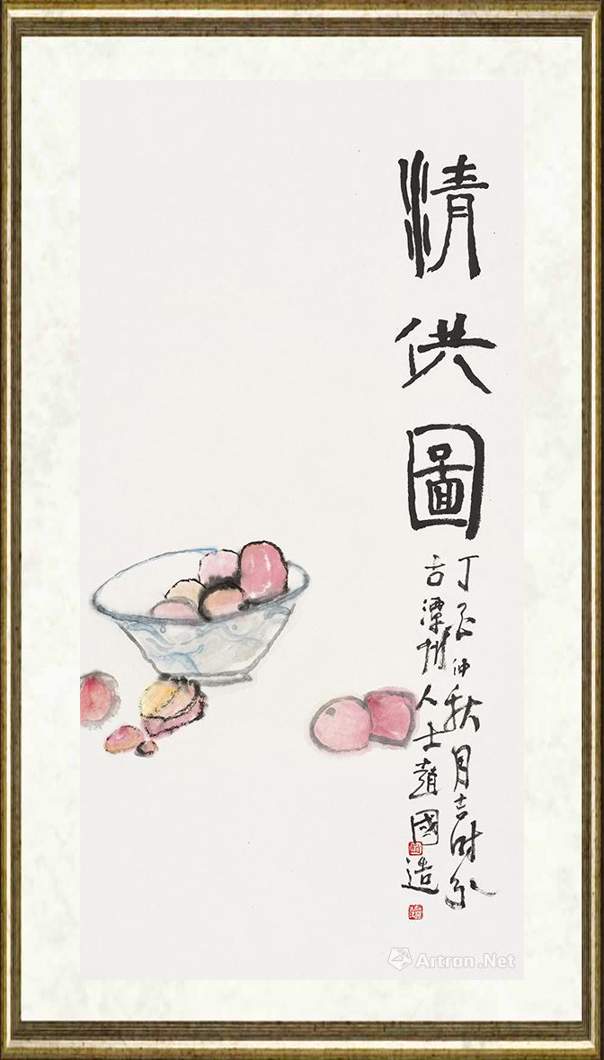 清供圖
丁酉仲秋月吉時於
古潭州人士趙國造
Artron.Net